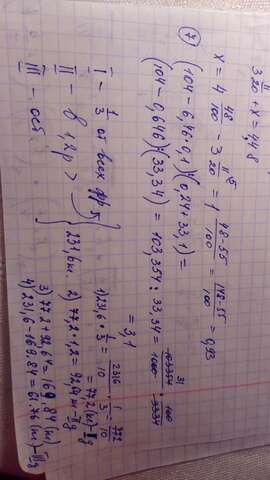 3 11/20 + x = 4,48
x = 4 48/100 - 3 11/20 = 1 48-55/100 = 148-55/100 = 0,93
7
(104 - 6,46 · 0,1) : (0,24 + 33,1) =
(104 - 0,646) : (33,34) = 103,354 : 33,34 =
= 3,1
I - 1/3 от всех
II - в 1,2 р >
III - ост
231,6 км
1) 231,6 · 1/3 = 2316/10 · 1/3 = 772/10
= 77,2 (км) - I
2) 77,2 · 1,2 = 92,64 км - II
3) 77,2 + 92,64 = 169,84 (км)
4) 231,6 - 169,84 = 61,76 (км) - III